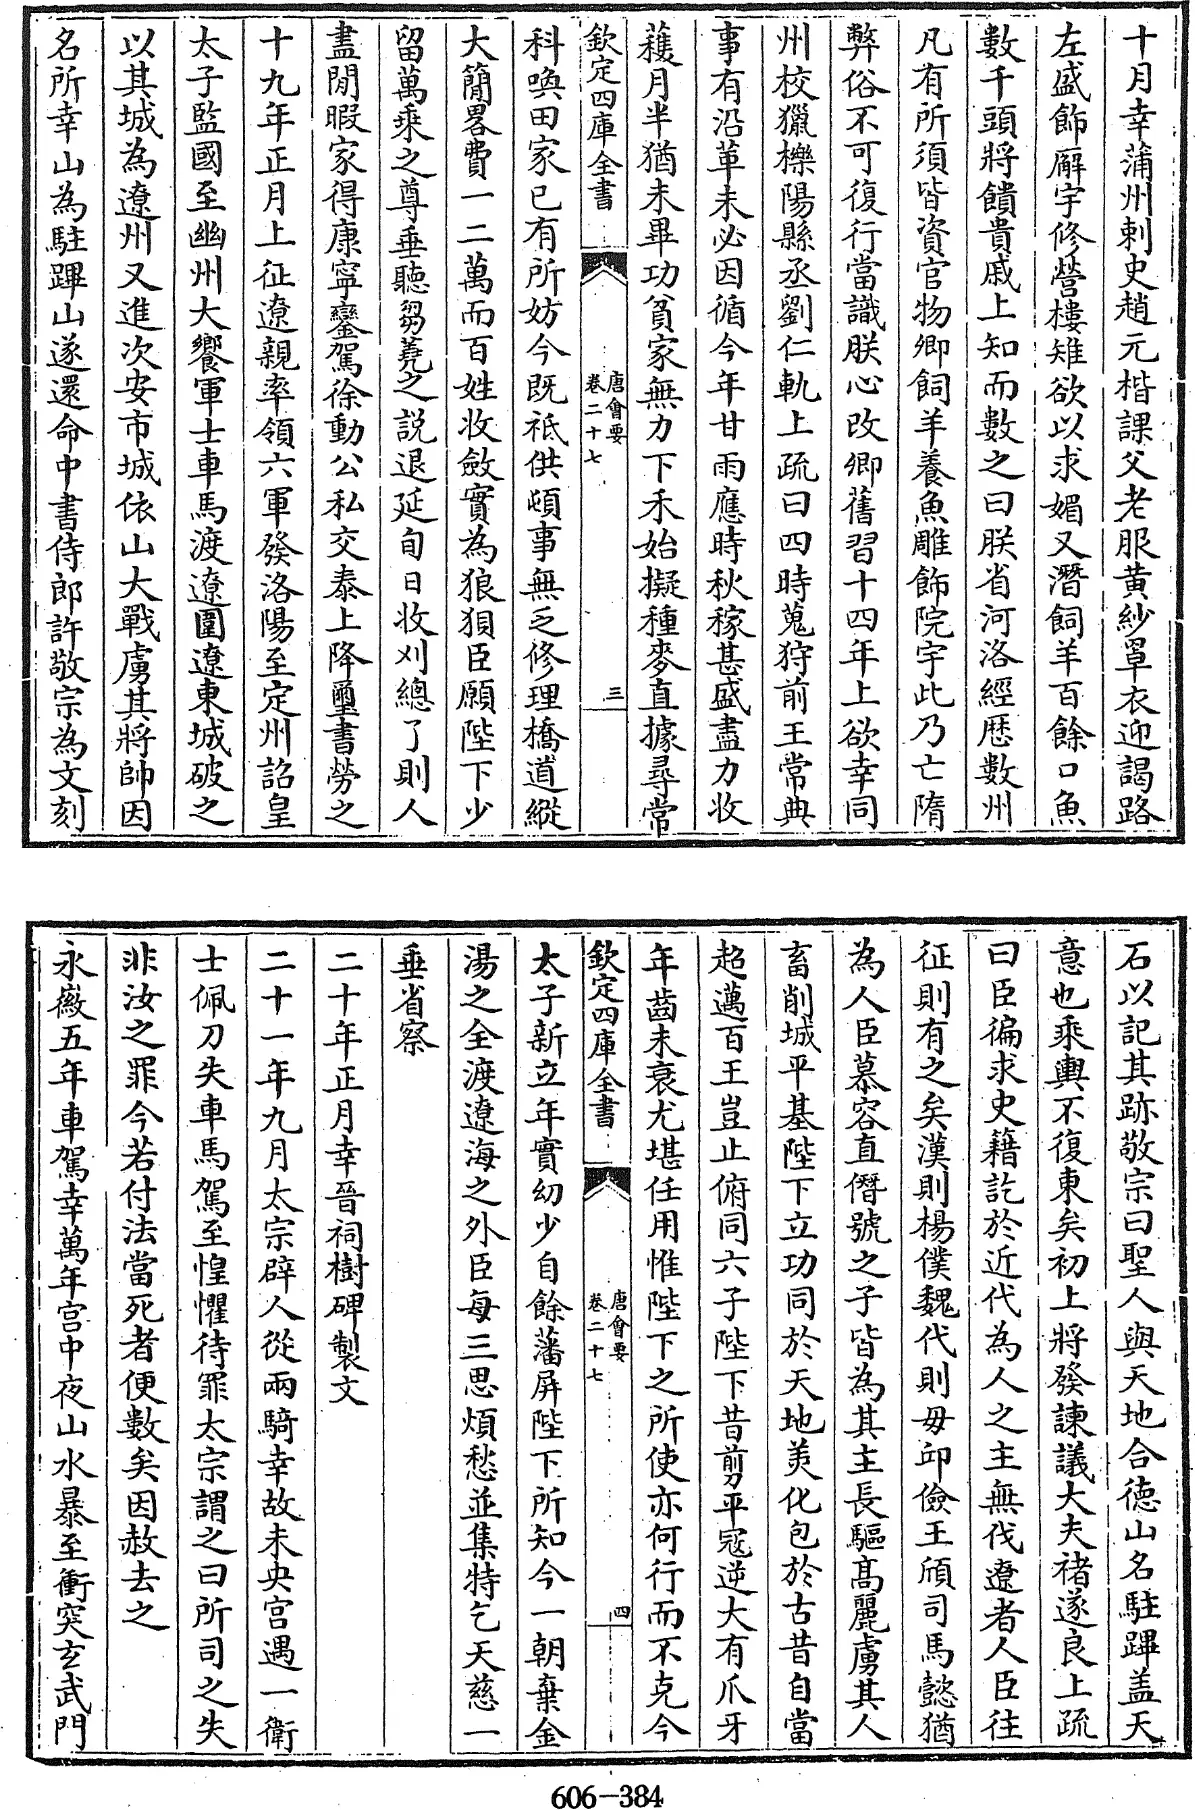 十月幸蒲州刺史趙元楷課父老服黄紗單衣迎謁路
左盛飾廨宇修營樓雉欲以求媚又潛飼羊百餘口魚
數千頭將饋貴戚上知而數之曰朕省河洛經歴數州
凡有所須皆資官物卿飼羊養魚雕飾院宇此乃亡隋
弊俗不可復行當識朕心改卿舊習十四年上欲幸同
州校獵櫟陽縣丞劉仁軌上疏曰四時蒐狩前王常典
事有沿革未必因循今年甘雨應時秋稼甚盛盡力收
穫月半猶未畢功貧家無力下禾始擬種麥直據尋常
欽定四庫全書
唐會要
卷二十七
三
科喚田家已有所妨今既祗供頓事無乏修理橋道縱
大簡畧費一二萬而百姓收斂實為狼狽臣願陛下少
留萬乘之尊垂聽芻蕘之説退延旬日收刈總了則人
盡閒暇家得康寧鑾駕徐動公私交泰上降璽書勞之
十九年正月上征遼親率領六軍發洛陽至定州詔皇
太子監國至幽州大饗軍士車馬渡遼圍遼東城破之
以其城為遼州又進次安市城依山大戰虜其將帥因
名所幸山為駐蹕山遂還命中書侍郎許敬宗為文刻
石以記其跡敬宗曰聖人與天地合徳山名駐蹕盖天
意也乘輿不復東矣初上將發諫議大夫褚遂良上疏
曰臣徧求史籍訖於近代為人之主無伐遼者人臣往
征則有之矣漢則楊僕魏代則毋邱儉王頎司馬懿猶
為人臣慕容直僭號之子皆為其主長驅高麗虜其人
畜削城平基陛下立功同於天地美化包於古昔自當
超邁百王豈止俯同六子陛下昔剪平冦逆大有爪牙
年齒未衰尤堪任用惟陛下之所使亦何行而不克今
欽定四庫全書
唐會要
卷二十七
四
太子新立年實幼少自餘藩屏陛下所知今一朝棄金
湯之全渡遼海之外臣每三思煩愁並集特乞天慈一
垂省察
二十年正月幸晉祠樹碑製文
二十一年九月太宗辟人從兩騎幸故未央宫遇一衛
士佩刀失車馬駕至惶懼待罪太宗謂之曰所司之失
非汝之罪今若付法當死者便數矣因赦去之
永徽五年車駕幸萬年宫中夜山水暴至衝突玄武門
606-384